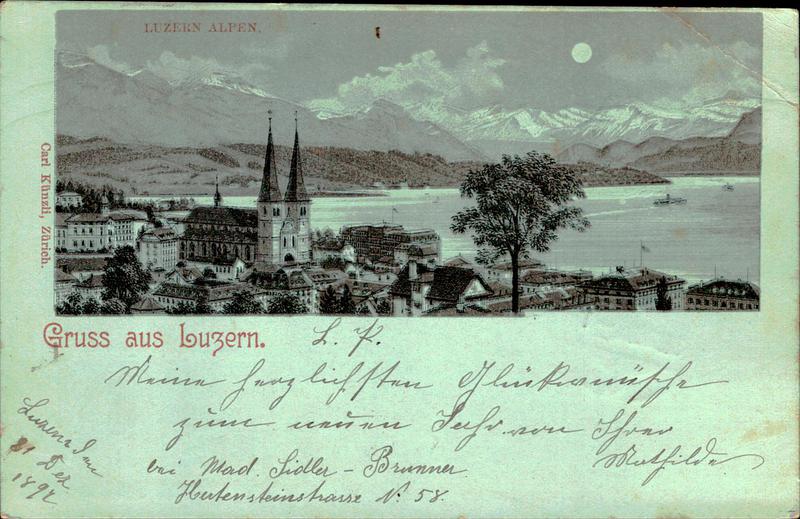 LUZERN ALPEN.
Carl Künzli, Zürich.
Gruss aus Luzern.
L. P.
Meine herzlichsten Glückwünsche
zum neuen Jahr von Ihrer
Mathilde
bei Mad. Sidler - Brunner
Hertensteinstrasse N. 58.
Luzern den
31 Dez